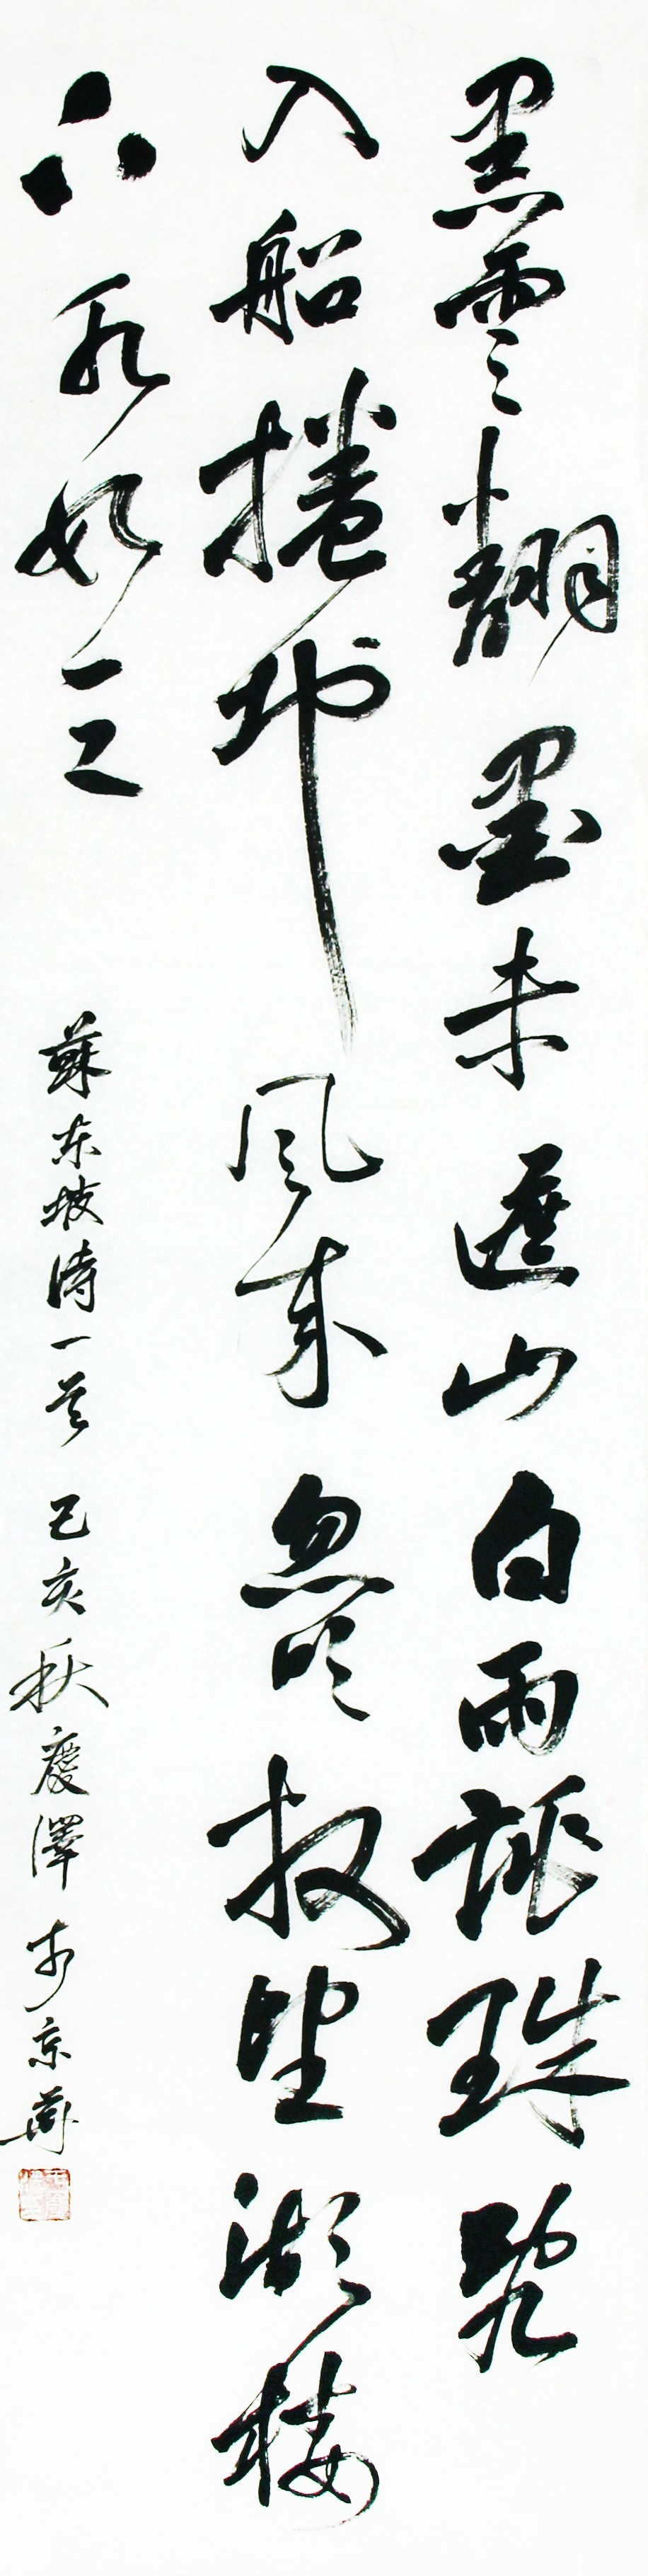 黑雲翻墨未遮山白雨跳珠亂
入船捲地風來忽吹散望湖樓
下水如天 蘇东坡詩一首 己亥秋慶澤書京華